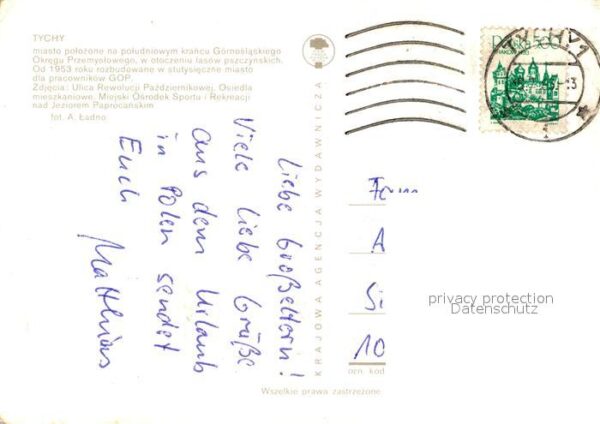 TYCHY
miasto położone na południowym krańcu Górnośląskiego
Okręgu Przemysłowego, w otoczeniu lasów pszczyńskich.
Od 1953 roku rozbudowane w stutysięczne miasto
dla pracowników GOP.
Zdjęcia: Ulica Rewolucji Październikowej. Osiedla
mieszkaniowe. Miejski Ośrodek Sportu i Rekreacji
nad Jeziorem Paprocańskim
fot. A. Ładno
Liebe Großeltern!
Viele liebe Grüße
aus dem Urlaub
in Polen sendet
Euch Matthias
KRAJOWA AGENCJA WYDAWNICZA
Polska 500
TYCHY 1
A
Si
10
ocn. kod
Wszelkie prawa zastrzeżone
privacy protection
Datenschutz